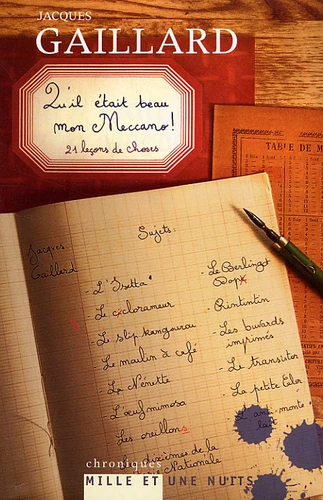 JACQUES
GAILLARD
Qu'il était beau
mon Meccano!
21 leçons de choses
TABLE DE M
Jacques
Gaillard
Sujets:
- L'"Isetta"
- Le ciclorameur
- Le slip kangourou
Le moulin à café
- La Nénette
L'œuf mimosa
Les oreillons
dixièmes de la
Nationale
- Le Berlingot
Dop
- Rintintin
- Les buvards
imprimés
- Le transistor
- La petite
L'anti-monte
lait
chroniques
MILLE ET UNE NUITS